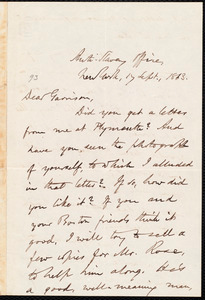 Anti-Slavery Office,
New York, 17 Sept., 1863.
Dear Garrison,
Did you get a letter
from me at Plymouth? And
have you seen the photograph
of yourself, to which I alluded
in that letter? If so, how did
you like it? If you and
your Boston friends think it
good, I will try to sell a
few copies for Mr. Rose,
to help him along. He's
a good, well-meaning man,